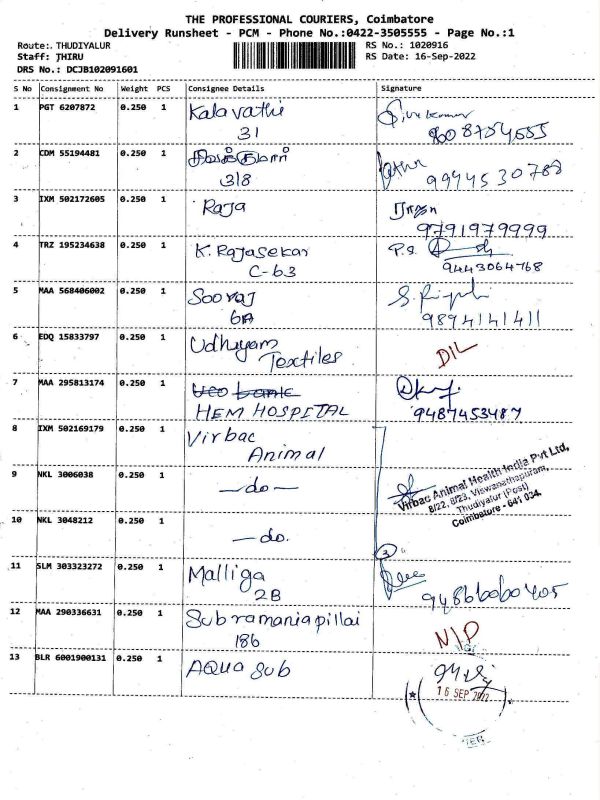 THE PROFESSIONAL COURIERS, Coimbatore
Delivery Runsheet - PCM - Phone No.:0422-3505555 - Page No.:1
Route:. THUDIYALUR RS No.: 1020916
Staff: THIRU RS Date: 16-Sep-2022
DRS No.: DCJB102091601
S No Consignment No Weight PCS Consignee Details Signature
1 PGT 6207872 0.250 1 Kalavathi
31
2 CDM 55194481 0.250 1
318 9994530788
3 IXM 502172605 0.250 1 Raja ராஜா
9791979999
4 TRZ 195234638 0.250 1 K. Rajasekar P.S.
C-63 9443064768
5 MAA 568406002 0.250 1 Sooraj
6A 9894141411
6 EDQ 15833797 0.250 1 Udhyam
Textiles D/L
7 MAA 295813174 0.250 1 Uco bank
HEM HOSPITAL 9487453487
8 IXM 502169179 0.250 1 Virbac
Animal
9 NKL 3006038 0.250 1 -do-
Virbac Animal Health India Pvt Ltd,
8/22, 8/23, Viswanathapuram,
Thudiyalur (Post)
Coimbatore - 641 034.
10 NKL 3048212 0.250 1 -do.
3
11 SLM 303323272 0.250 1 Malliga
2B
12 MAA 290336631 0.250 1 Subramaniapillai
186 N/P
13 BLR 6001900131 0.250 1 Aqua Sub
16 SEP 2022